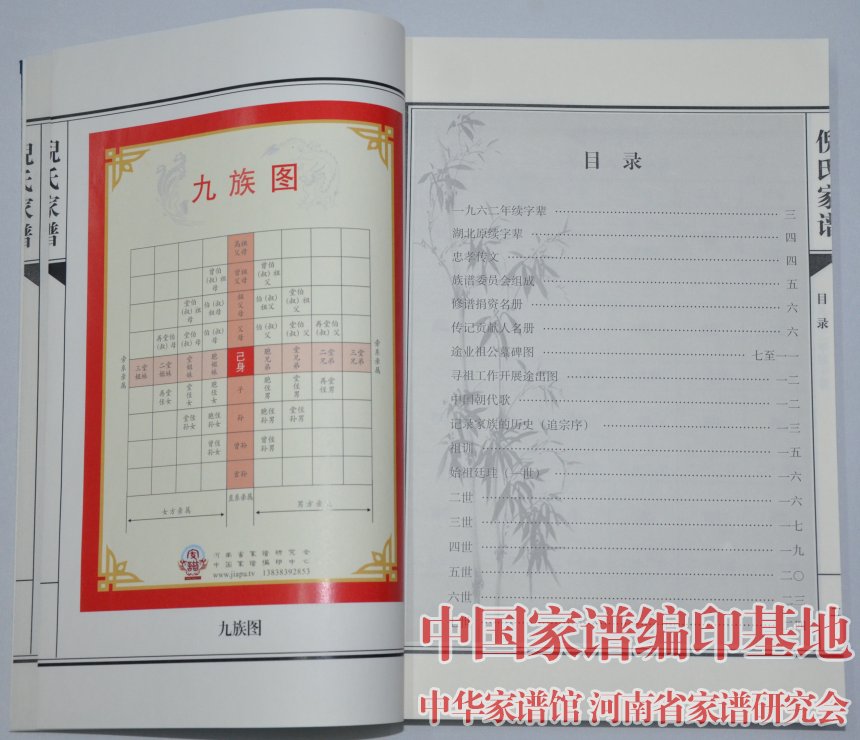 倪氏家谱
倪氏家谱
九族图
高祖
父母
曾伯
(叔)祖
母
曾祖
父母
曾伯
(叔)祖
父
堂伯
(叔)祖
母
伯(叔)
祖母
祖
父母
伯(叔)
祖父
堂伯
(叔)祖
父
再堂伯
(叔)母
堂伯
(叔)母
伯(叔)
母
父
母
伯(叔)
父
堂伯
(叔)父
再堂伯
(叔)父
三堂
姐妹
二堂
姐妹
堂
姐妹
胞
姐妹
己身
胞
兄弟
堂
兄弟
二堂
兄弟
三堂
兄弟
再堂
侄女
堂侄
女
胞侄
女
子
胞
侄男
堂
侄男
再堂
侄男
堂侄
孙女
胞侄
孙女
孙
胞侄
孙男
堂侄
孙男
曾侄
孙女
曾孙
曾侄
孙男
玄孙
旁系亲属
旁系亲属
女方亲属
直系亲属
男方亲属
河南省家谱研究会
中国家谱编印中心
www.jiapu.tv 13838392853
九族图
倪氏家谱
目录
目录
一九六二年续字辈 三
湖北原续字辈 四
忠孝传文 四
族谱委员会组成 五
修谱捐资名册 六
传记贡献人名册 六
途业祖公墓碑图 七至一一
寻祖工作开展途出图 一二
中国朝代歌 一二
记录家族的历史（追宗序） 一三
祖训 一五
始祖廷珪（一世） 一六
二世 一六
三世 一七
四世 一九
五世 二〇
六世 二三
中国家谱编印基地
中华家谱馆 河南省家谱研究会